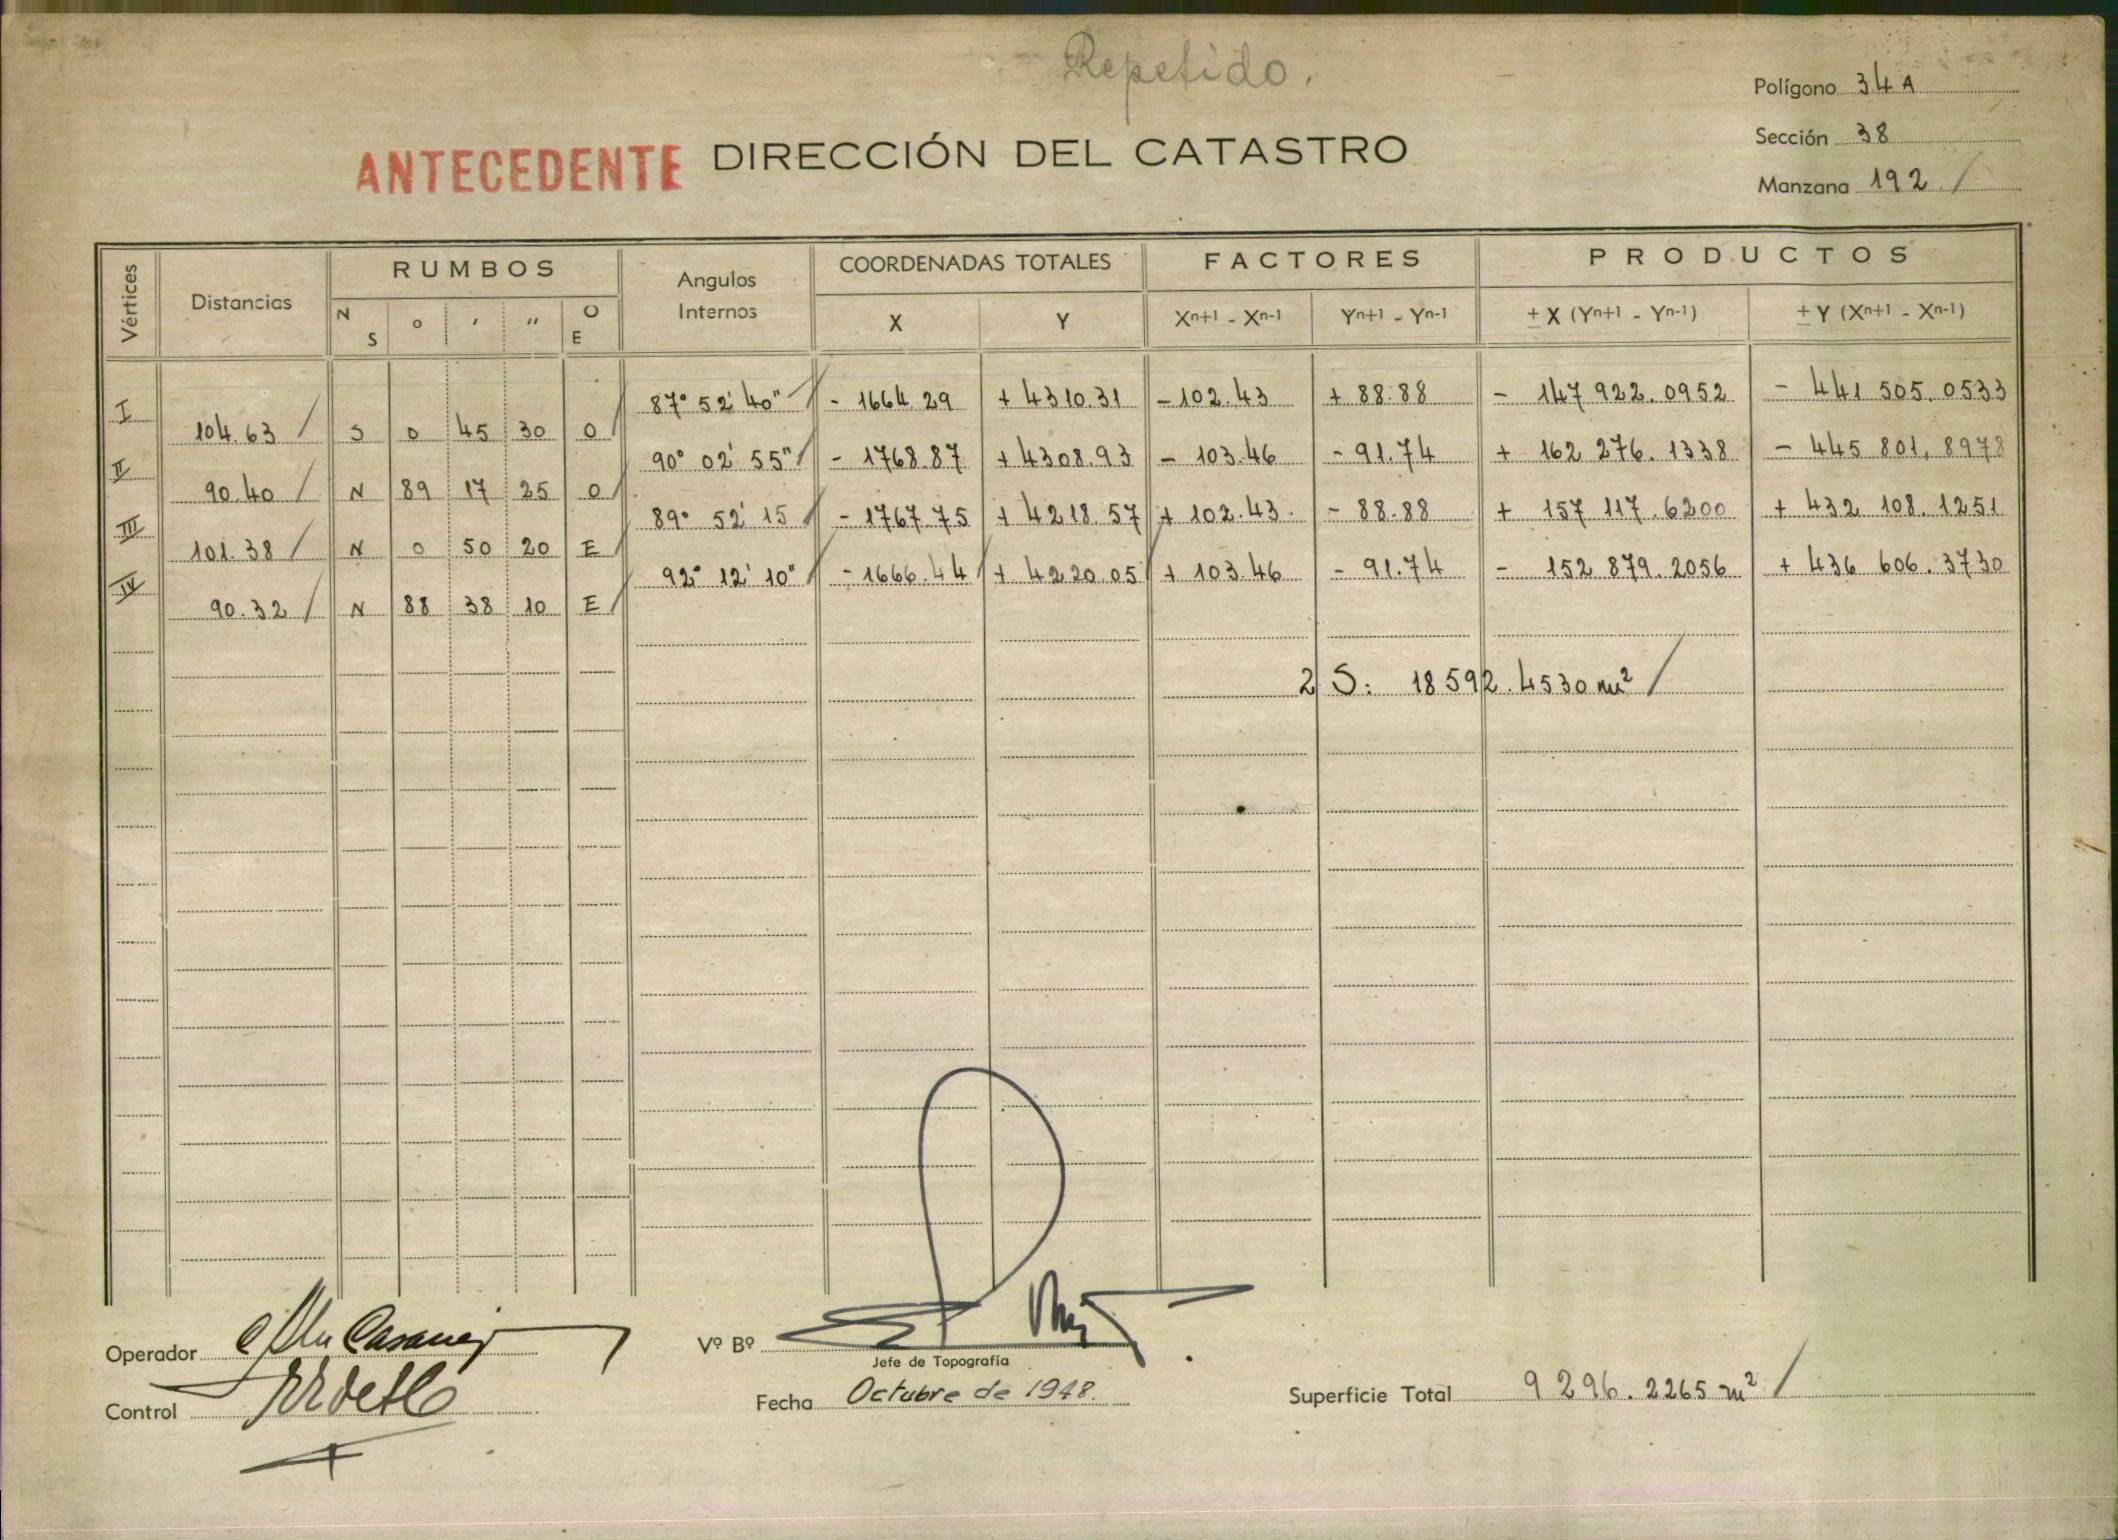 Repetido.
Polígono 34 A
Sección 38
Manzana 192
ANTECEDENTE DIRECCIÓN DEL CATASTRO
Vértices Distancias RUMBOS Angulos Internos COORDENADAS TOTALES FACTORES PRODUCTOS
N S o ' '' O E X Y Xn+1 - Xn-1 Yn+1 - Yn-1 ± X (Yn+1 - Yn-1) ± Y (Xn+1 - Xn-1)
I 87° 52' 40" - 1664.29 + 4310.31 - 102.43 + 88.88 - 147 922.0952 - 441 505.0533
104.63 S 0 45 30 O
II 90° 02' 55" - 1768.87 + 4308.93 - 103.46 - 91.74 + 162 276.1338 - 445 801,8978
90.40 N 89 17 25 O
III 89° 52' 15 - 1767.75 + 4218.57 + 102.43. - 88.88 + 157 117.6200 + 432 108.1251
101.38 N 0 50 20 E
IV 92° 12' 10" - 1666.44 + 4220.05 + 103.46 - 91.74 - 152 879.2056 + 436 606.3730
90.32 N 88 38 10 E
2 S: 18592.4530 m²
Operador
Vº Bº
Jefe de Topografía
Control
Fecha Octubre de 1948.
Superficie Total 9 296.2265 m²